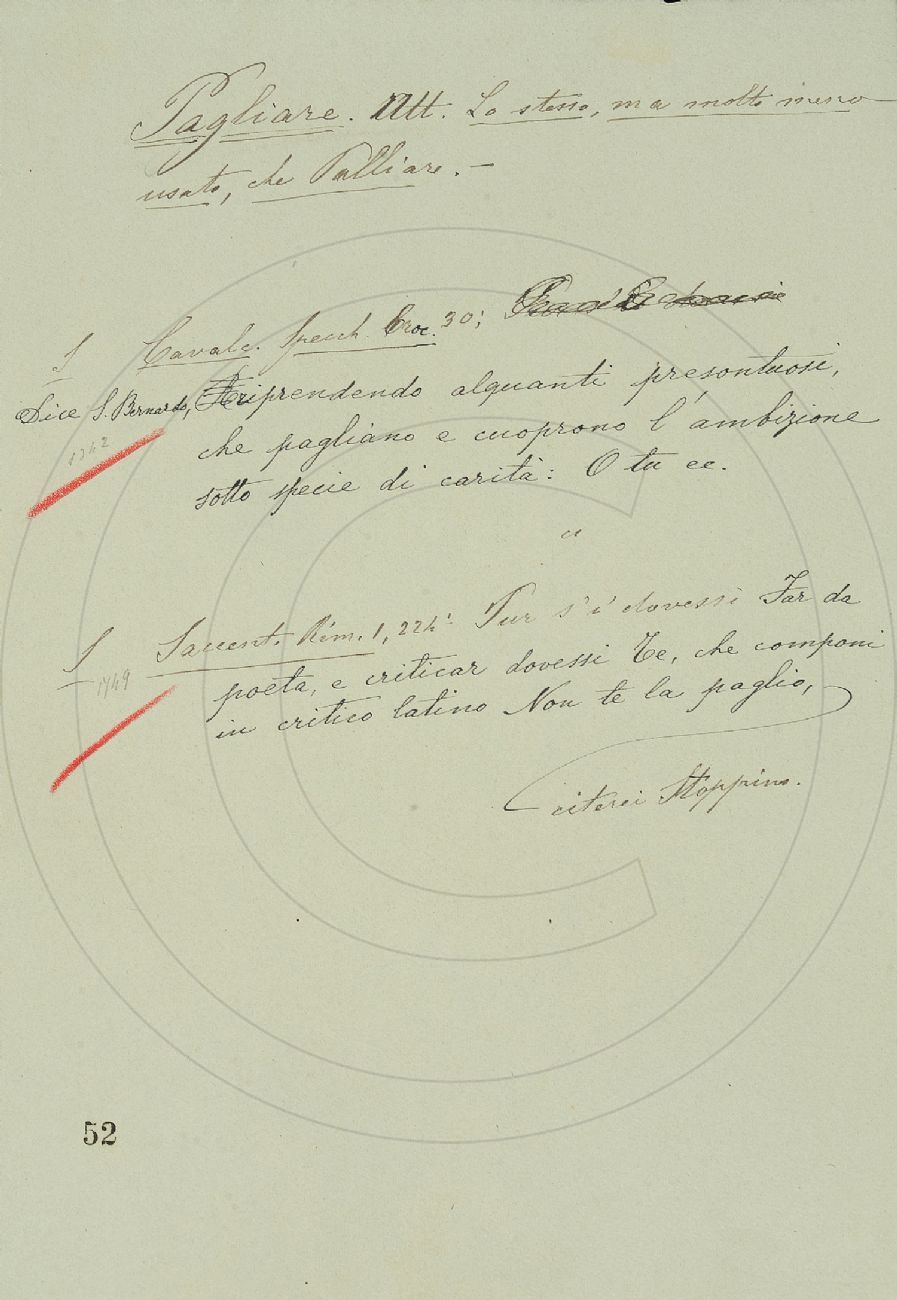 Pagliare. Att. Lo stesso, ma molto meno
usato, che Palliare. –
§ Cavalc. Specch. Croc. 30;
Dice S. Bernardo, riprendendo alquanti presontuosi,
1342
che pagliano e cuoprono l'ambizione
sotto specie di carità: O tu ec.
"
§ Saccent. Rim. 1, 224: Pur s'i' dovessi Far da
1749
poeta, e criticar dovessi Te, che componi
in critico latino Non te la paglio,
citerei Stoppino.
52